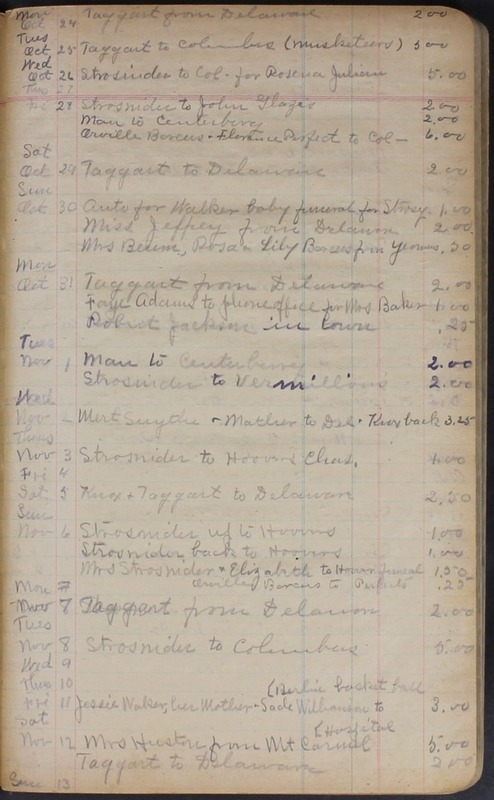 Mon
Oct 24 Taggart from Delaware 2.00
Tues
Oct 25 Taggart to Columbus (Musketeers) 5.00
Wed
Oct 26 Strosnider to Col. for Rosena Julian 5.00
Thus 27
Fri 28 Strosnider to John 2.00
Man to Centerberg 2.00
Orville Borcus + Florence Perfect to Col — 6.00
Sat
Oct 29 Taggart to Delaware 2.00
Sun
Oct 30 Auto for Walker baby funeral for Strosy. 1.00
Miss Jeffrey from Delawon 2.00
Mrs Rosa + Lily Borcus from .50
Mon
Oct 31 Taggart from Delaware 2.00
Faye Adams to phone office for Mrs. Baker 1.00
Robert Jackson in town .25
Tues
Nov 1 Man to Centerberg 2.00
Strosnider to Vermillion 2.00
Wed
Nov 2 Mert Smythe + Mather to Del. Knox back 3.25
Thus
Nov 3 Strosnider to Hoovers Chas. 1.00
Fri 4
Sat 5 Knox + Taggart to Delaware 2.50
Sun
Nov 6 Strosnider up to Hoovers 1.00
Strosnider back to Hoovers 1.00
Mrs Strosnider + Elizabeth to funeral 1.50
Orville Borcus to Perfects .25
Mon 7
Nov 7 Taggart from Delawon 2.00
Tues
Nov 8 Strosnider to Columbus 5.00
Wed 9
Thus 10 (Berlin basket ball
Fri 11 Jessie Waker, her Mother + Sade Williamson to 3.00
Sat (Hospital
Nov 12 Mrs Huston from Mt Carmel 5.00
Taggart to Delaware 2.00
Sun 13